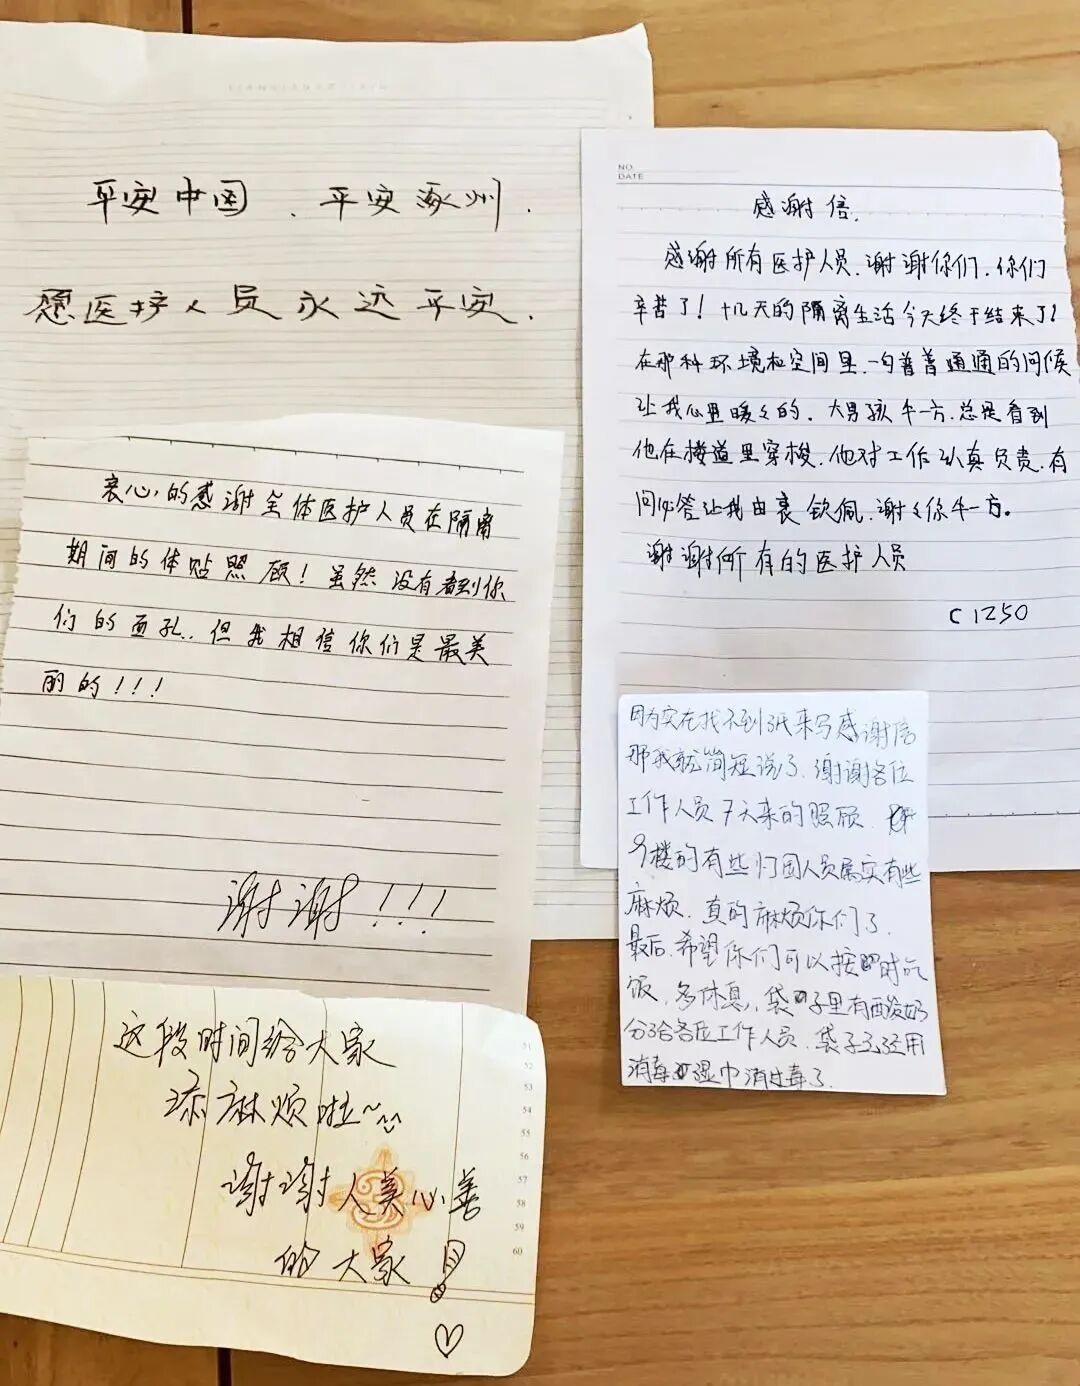 平安中国、平安涿州.
愿医护人员永远平安.
NO.
DATE
感谢信.
感谢所有医护人员.谢谢你们.你们
辛苦了!十几天的隔离生活今天终于结束了!
在那种环境和空间里.一句普普通通的问候
让我心里暖々的.大男孩牛一方.总是看到
他在楼道里穿梭.他对工作认真负责.有
问必答让我由衷钦佩.谢々你牛一方。
谢谢所有的医护人员
C1250
衷心的感谢全体医护人员在隔离
期间的体贴照顾!虽然没有看到你
们的面孔.但我相信你们是最美
丽的!!!
谢谢!!!
因为实在找不到纸来写感谢信
那我就简短说了.谢谢各位
工作人员7天来的照顾.
9楼的有些归国人员属实有些
麻烦.真的麻烦你们了.
最后.希望你们可以按时吃
饭.多休息.袋子里有
分给各位工作人员.袋子已经用
消毒湿巾消过毒了.
这段时间给大家
添麻烦啦~
谢谢人美心善
的大家!
51
52
53
54
55
56
57
58
59
60